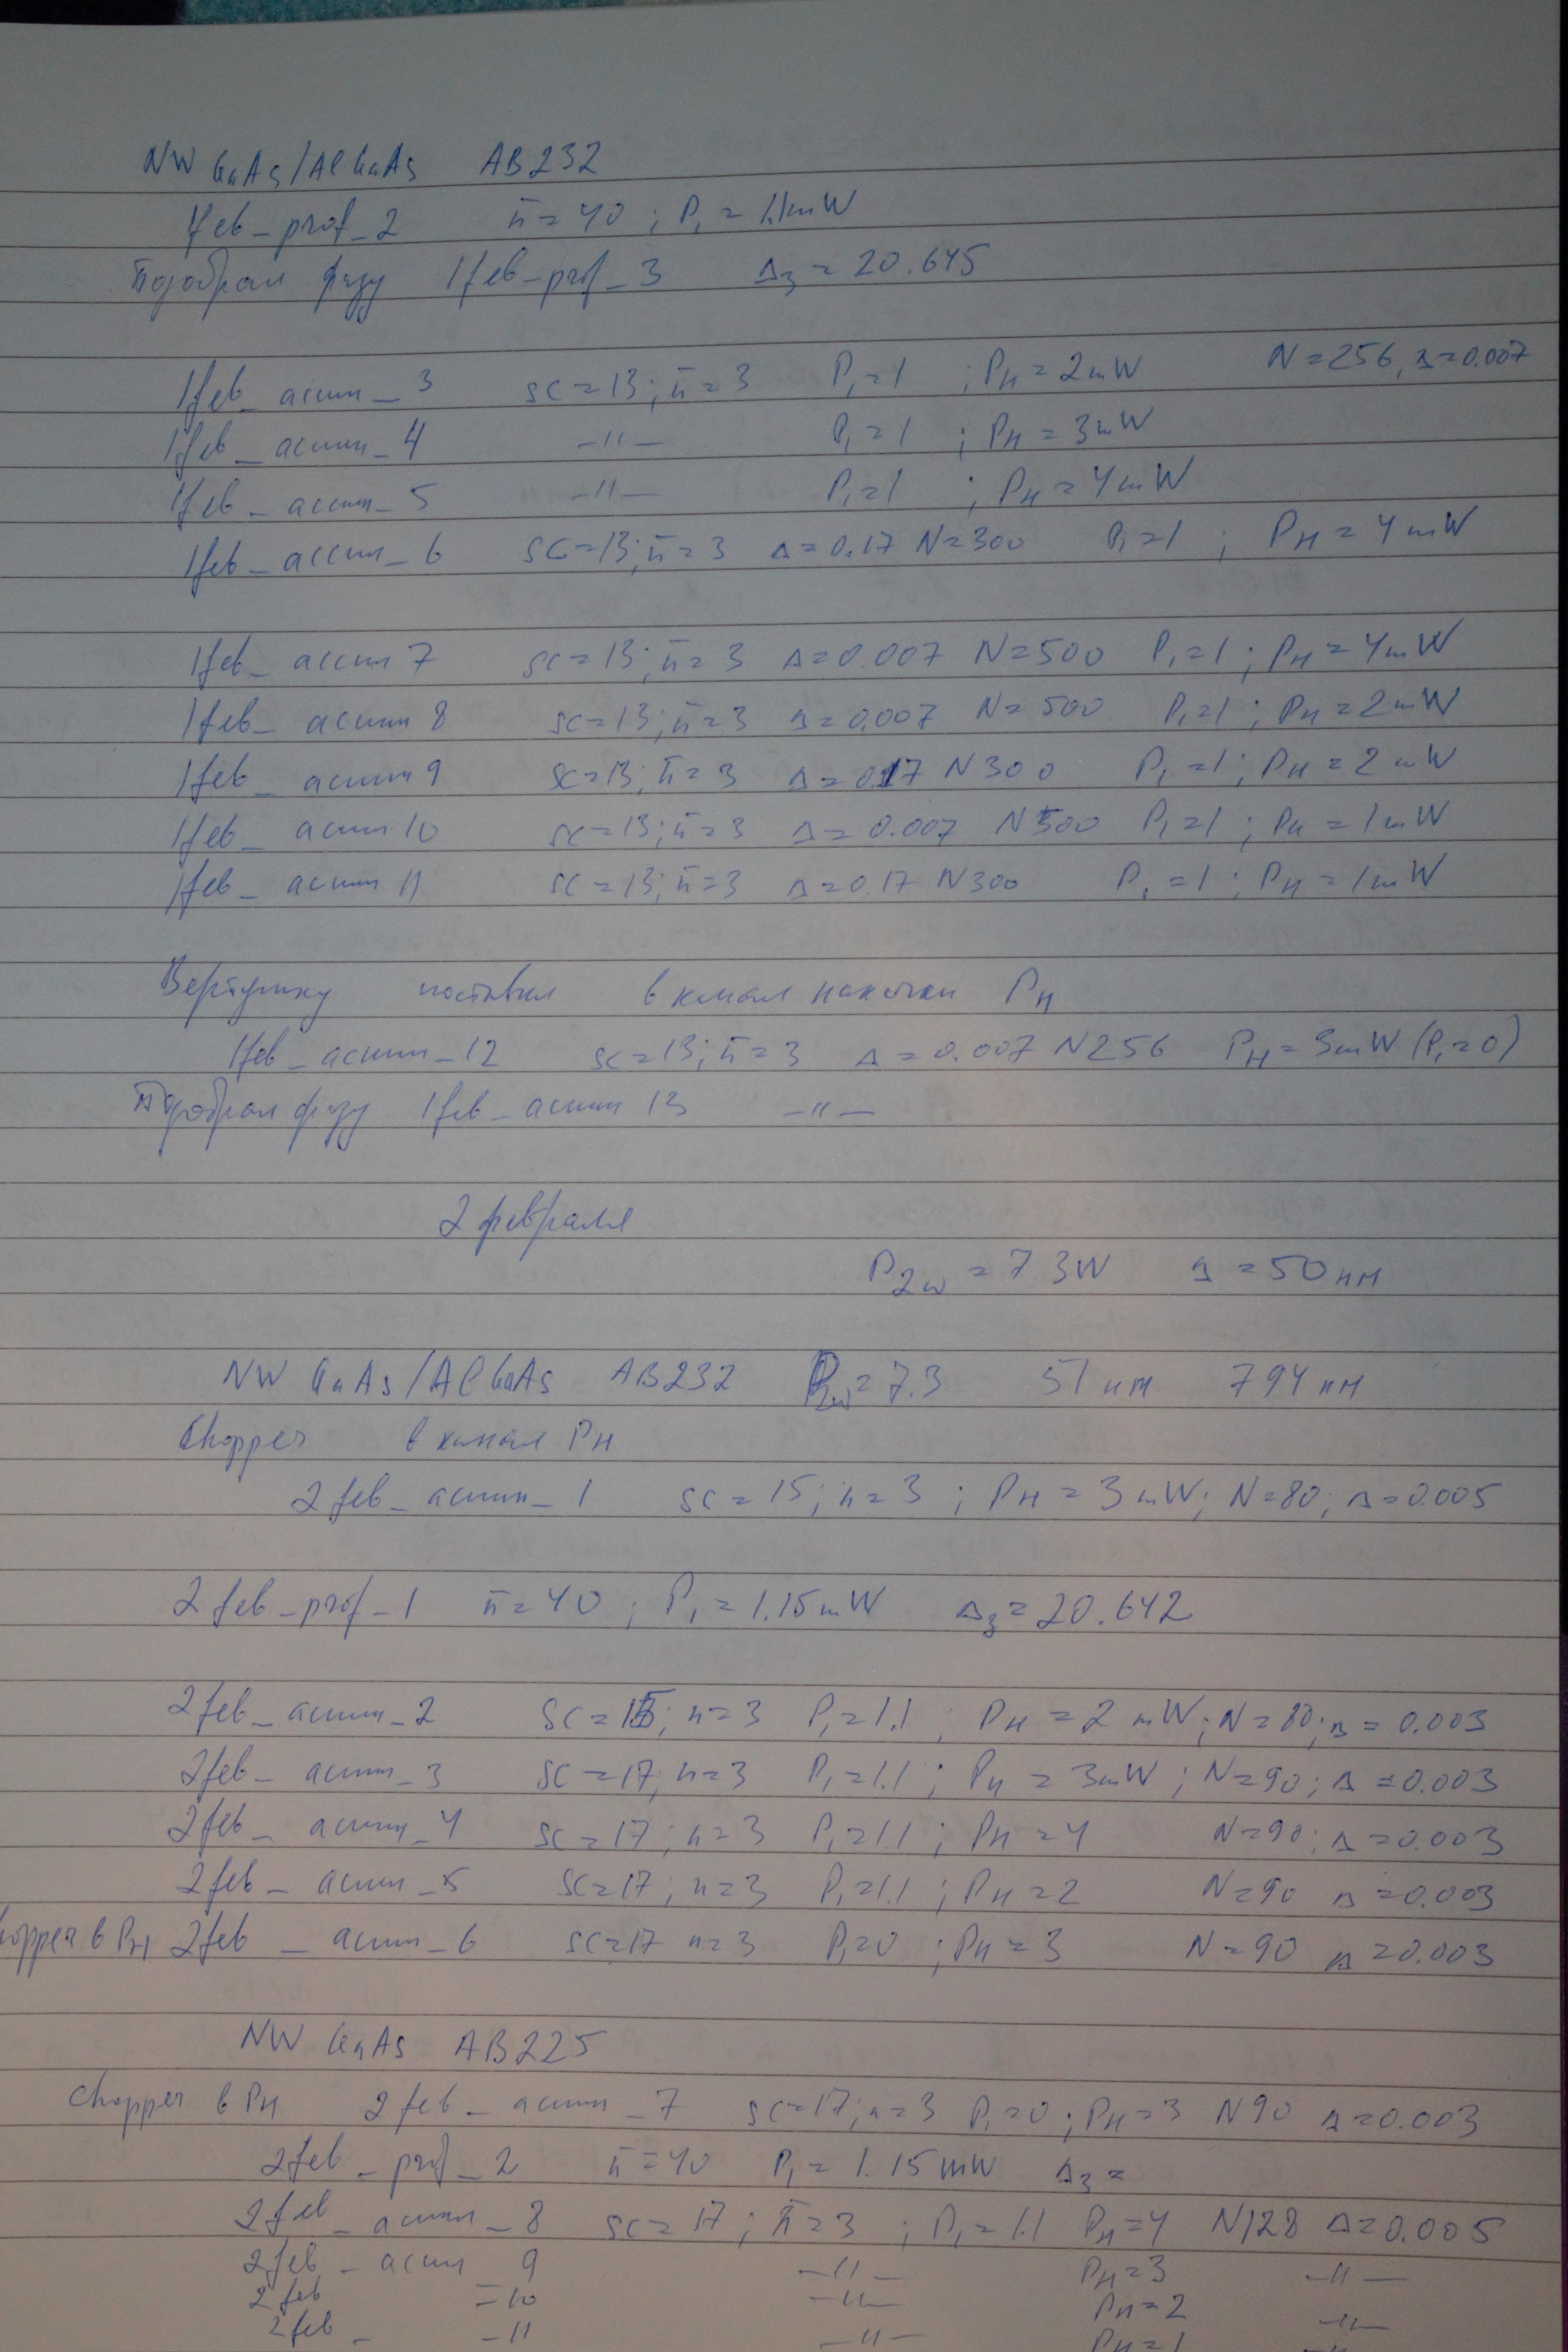 NW GaAs/AlGaAs AB232
1feb_prof_2 п=40 ; P₁=1.1mW
Подобрал фазу 1feb_prof_3 Δ₃=20.645
N=256, Δ=0.007
1feb_асимм_3 sc=13; п=3 P₁=1 ; Pн=2mW
1feb_асимм_4 –"– P₁=1 ; Pн=3mW
1feb_асимм_5 –"– P₁=1 ; Pн=4mW
1feb_асимм_6 sc=13; п=3 Δ=0.17 N=300 P₁=1 ; Pн=4mW
1feb_асимм 7 sc=13; п=3 Δ=0.007 N=500 P₁=1 ; Pн=4mW
1feb_асимм 8 sc=13; п=3 Δ=0.007 N=500 P₁=1 ; Pн=2mW
1feb_асимм 9 sc=13; п=3 Δ=0.17 N300 P₁=1 ; Pн=2mW
1feb_асимм 10 sc=13; п=3 Δ=0.007 N500 P₁=1 ; Pн=1mW
1feb_асимм 11 sc=13; п=3 Δ=0.17 N300 P₁=1 ; Pн=1mW
Вертушку поставил в канал накачки Pн
1feb_асимм_12 sc=13; п=3 Δ=0.007 N256 Pн=3mW (P₁=0)
Подобрал фазу 1feb_асимм 13 –"–
2 февраля
P2w=7 3W Δ=50нм
NW GaAs/AlGaAs AB232 P2w=7.3 51нм 794нм
Chopper в канал Pн
2feb_асимм_1 sc=15; п=3 ; Pн=3mW; N=80; Δ=0.005
2feb_prof_1 п=40 ; P₁=1.15mW Δ₃=20.642
2feb_асимм_2 sc=15; п=3 P₁=1.1 ; Pн=2 mW; N=80; Δ=0.003
2feb_асимм_3 sc=17; п=3 P₁=1.1 ; Pн=3mW ; N=90; Δ=0.003
2feb_асимм_4 sc=17; п=3 P₁=1.1 ; Pн=4 N=90; Δ=0.003
2feb_асимм_5 sc=17; п=3 P₁=1.1 ; Pн=2 N=90 Δ=0.003
hopper в Pн 2feb_асимм_6 sc=17 п=3 P₁=0 ; Pн=3 N=90 Δ=0.003
NW GaAs AB225
Chopper в Pн 2feb_асимм_7 sc=17; п=3 P₁=0 ; Pн=3 N90 Δ=0.003
2feb_prof_2 п=40 P₁=1.15mW Δ₃=
2feb_асимм_8 sc=17; п=3 ; P₁=1.1 Pн=4 N128 Δ=0.005
2feb_асим 9 –"– Pн=3 –"–
2feb =10 –"– Pн=2 –"–
2feb_ -11 –"– Pн=1 –"–